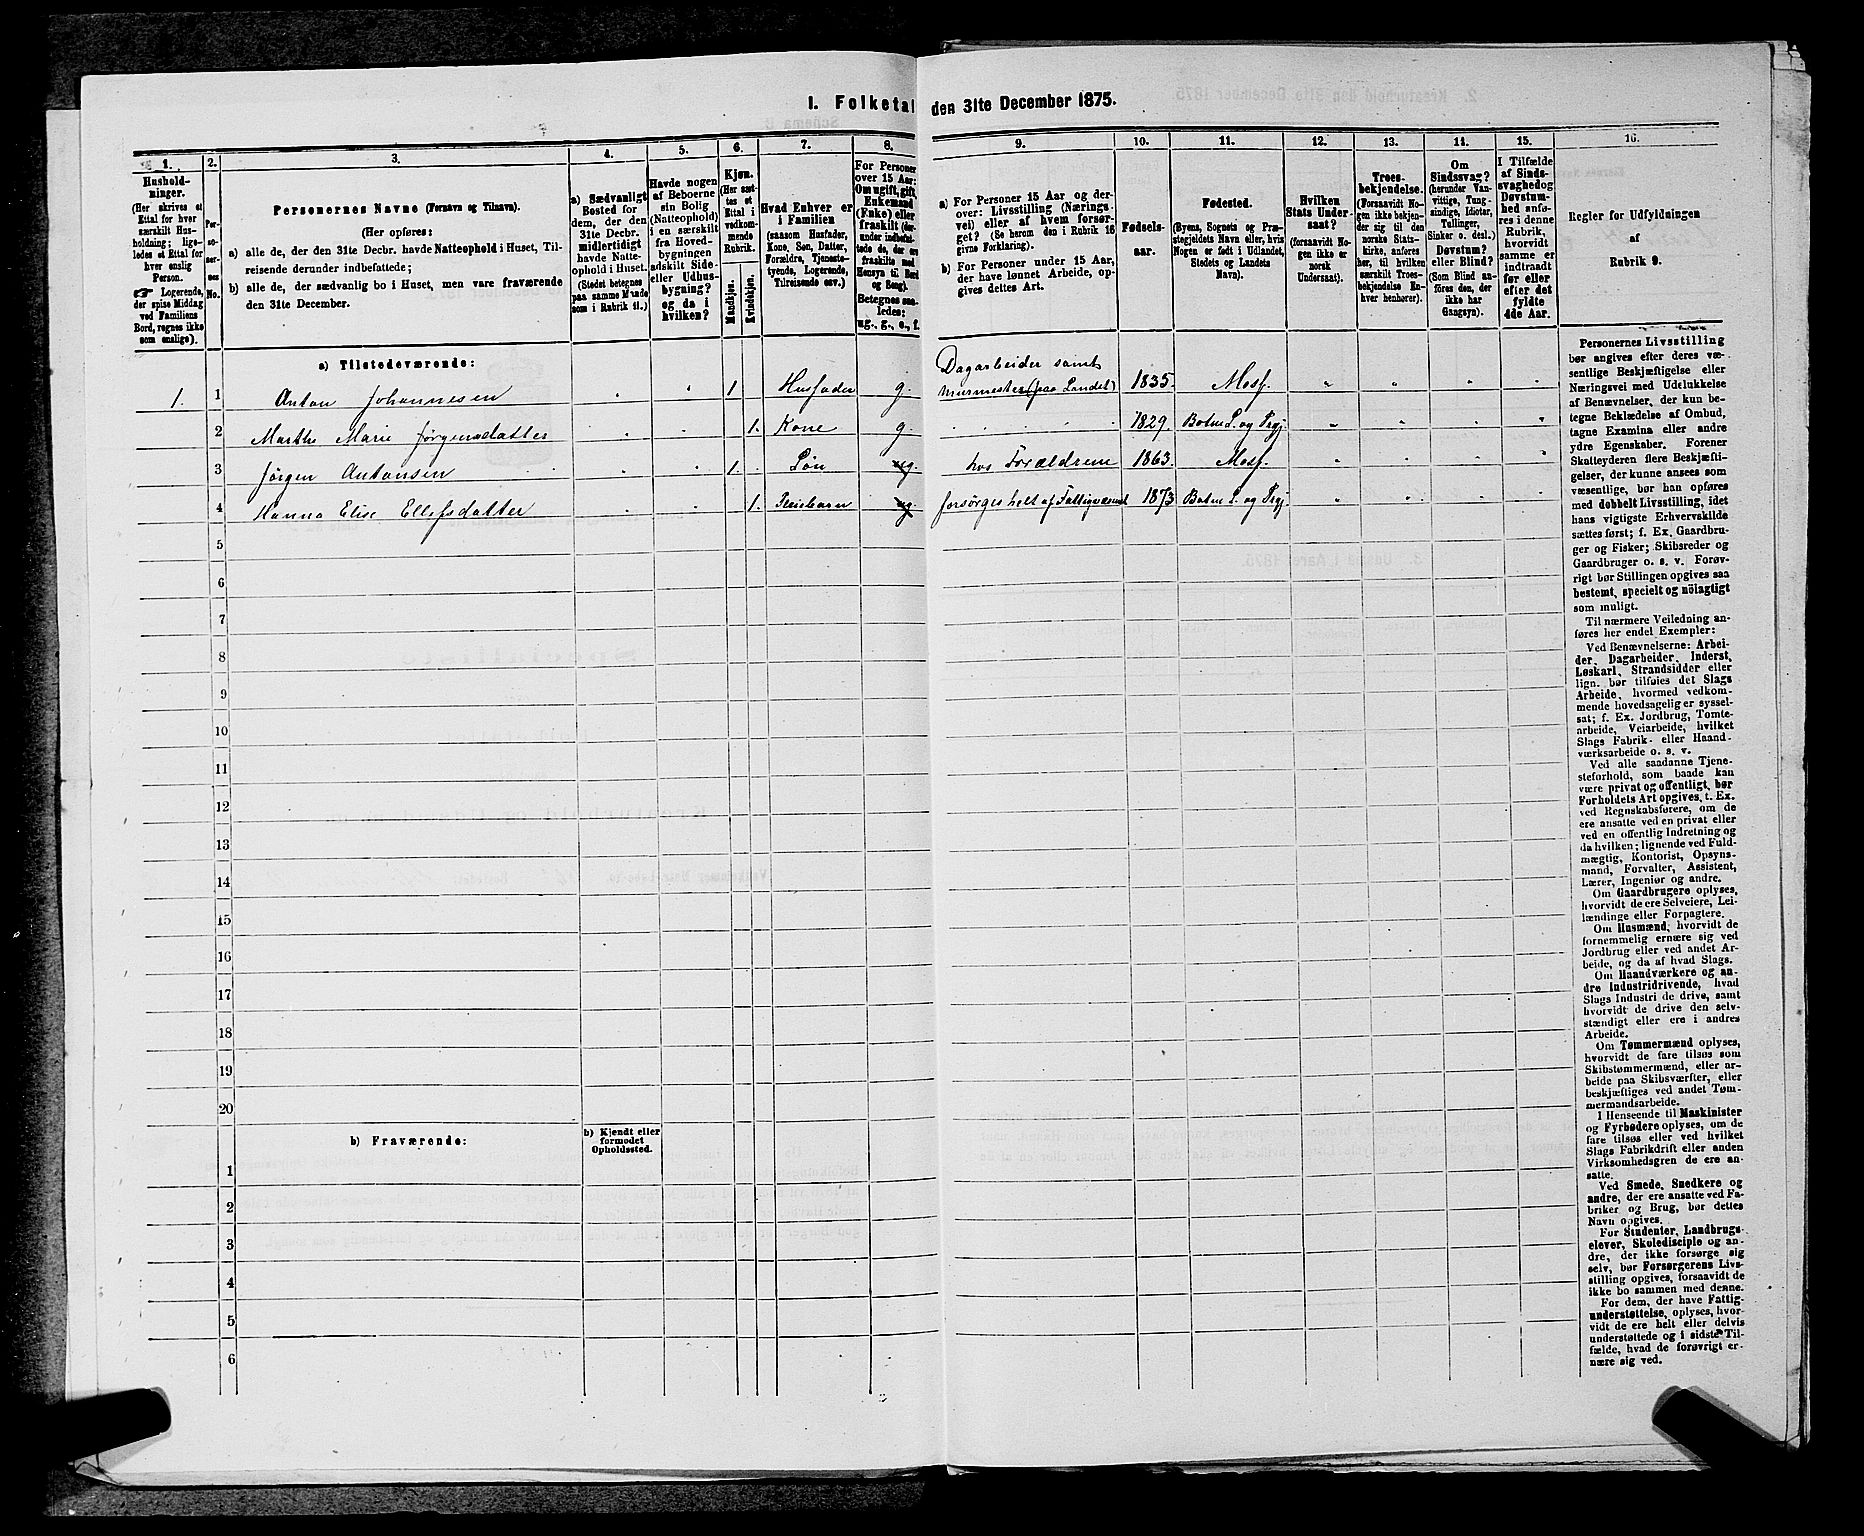 1. Folketal den 31te December 1875.
1. 2. 3. 4. 5. 6. 7. 8. 9. 10. 11. 12. 13. 14. 15. 16.
Hushold-
ninger.
(Her skrives et
Ettal for hver
særskilt Hus-
holdning; lige-
ledes et Ettal for
hver enslig
Person.
☞ Logerende,
der spise Middag
ved Familiens
Bord, regnes ikke
som enslige).
Per-
so-
ner-
nes
No.
Personernes Navne (Fornavn og Tilnavn).
(Her opføres:
a) alle de, der den 31te Decbr. havde Natteophold i Huset, Til-
reisende derunder indbefattede;
b) alle de, der sædvanlig bo i Huset, men vare fraværende
den 31te December.
a) Sædvanligt
Bosted for
dem, der den
31te Decbr.
midlertidigt
havde Natte-
ophold i Huset.
(Stedet betegnes
paa samme Maade
som i Rubrik 11.)
Havde nogen
af Beboerne
sin Bolig
(Natteophold)
i en særskilt
fra Hoved-
bygningen
adskilt Side-
eller Udhus-
bygning?
og da i
hvilken?
Kjøn.
(Her sæt-
tes et
Ettal i
vedkom-
mende
Rubrik.
Mandkjøn.
Kvindekjøn.
Hvad Enhver er
i Familien
(saasom Husfader,
Kone, Søn, Datter,
Forældre, Tjeneste-
tyende, Logerende,
Tilreisende osv.)
For Personer
over 15 Aar:
Om ugift, gift,
Enkemand
(Enke) eller
fraskilt (der-
under indbefat-
tede de, der ere
fraskilte med
Hensyn til Bord
og Seng).
Betegnes saa-
ledes:
ug., g., e., f.
a) For Personer 15 Aar og der-
over: Livsstilling (Nærings-
vei) eller af hvem forsør-
get? (Se herom den i Rubrik 16
givne Forklaring).
b) For Personer under 15 Aar,
der have lønnet Arbeide, op-
gives dettes Art.
Fødsels-
aar.
Fødested.
(Byens, Sognets og Præ-
stegjeldets Navn eller, hvis
Nogen er født i Udlandet,
Stedets og Landets
Navn).
Hvilken
Stats Under-
saat?
(forsaavidt No-
gen ikke er
norsk
Undersaat).
Troes-
bekjendelse.
(Forsaavidt No-
gen ikke bekjen-
der sig til den
norske Stats-
kirke, anføres
her, til hvilken
særskilt Troes-
bekjendelse En-
hver henhører).
Om
Sindssvag?
(herunder Van-
vittige, Tung-
sindige, Idioter,
Tullinger,
Sinker o. desl.)
Døvstum?
eller Blind?
(Som Blind an-
føres den, der
ikke har
Gangsyn).
I Tilfælde
af Sinds-
svaghed og
Døvstum-
hed anfø-
res i denne
Rubrik,
hvorvidt
samme er
indtraadt
før eller
efter det
fyldte
4de Aar.
Regler for Udfyldningen
af
Rubrik 9.
a) Tilstedeværende:
1. 1 Anton Johannesen 1 Husfader g. Dagarbeider samt
Murmester (paa Landet) 1835. Mosf.
2 Marthe Marie Jørgensdatter 1. Kone g. 1829. Botne S. og Prgj.
3 Jørgen Antonsen 1. Søn ug. hos Forældrene 1863. Mosf.
4 Hanna Elise Ellefsdatter 1. Pleiebarn ug. forsørges helt af Fattigvæsenet 1873 Botne S. og Prgj.
5
6
7
8
9
10
11
12
13
14
15
16
17
18
19
20
b) Fraværende:
b) Kjendt eller
formodet
Opholdssted.
1
2
3
4
5
6
Personernes Livsstilling
bør angives efter deres væ-
sentlige Beskjæftigelse eller
Næringsvei med Udelukkelse
af Benævnelser, der kun be-
tegne Beklædelse af Ombud,
tagne Examina eller andre
ydre Egenskaber. Forener
Skatteyderen flere Beskjæfti-
gelser, der kunne ansees som
væsentlige, bør han opføres
med dobbelt Livsstilling, idet
hans vigtigste Erhvervskilde
sættes først; f. Ex. Gaardbru-
ger og Fisker; Skibsreder og
Gaardbruger o. s. v. Forøv-
rigt bør Stillingen opgives saa
bestemt, specielt og nöiagtigt
som muligt.
Til nærmere Veiledning an-
føres her endel Exempler:
Ved Benævnelserne: Arbei-
der, Dagarbeider, Inderst,
Løskarl, Strandsidder eller
lign. bør tilføies det Slags
Arbeide, hvormed vedkom-
mende hovedsagelig er syssel-
sat; f. Ex. Jordbrug, Tomte-
arbeide, Veiarbeide, hvilket
Slags Fabrik- eller Haand-
værksarbeide o. s. v.
Ved alle saadanne Tjene-
steforhold, som baade kan
være privat og offentligt, bør
Forholdets Art opgives, t. Ex.
ved Regnskabsførere, om de
ere ansatte ved en privat eller
ved en offentlig Indretning og
da hvilken; lignende ved Fuld-
mægtig, Kontorist, Opsyns-
mand, Forvalter, Assistent,
Lærer, Ingeniør og andre.
Om Gaardbrugere oplyses,
hvorvidt de ere Selveiere, Lei-
lændinge eller Forpagtere.
Om Husmænd, hvorvidt de
fornemmelig ernære sig ved
Jordbrug eller ved andet Ar-
beide, og da af hvad Slags.
Om Haandværkere og an-
dre Industridrivende, hvad
Slags Industri de drive, samt
hvorvidt de drive den selv-
stændigt eller ere i andres
Arbeide.
Om Tømmermænd oplyses,
hvorvidt de fare tilsøs som
Skibstømmermænd, eller ar-
beide paa Skibsværfter, eller
beskjæftiges ved andet Tøm-
mermandsarbeide.
I Henseende til Maskinister
og Fyrbødere oplyses, om de
fare tilsøs eller ved hvilket
Slags Fabrikdrift eller anden
Virksomhedsgren de ere an-
satte.
Ved Smede, Snedkere og
andre, der ere ansatte ved Fa-
briker og Brug, bør dettes
Navn opgives.
For Studenter, Landbrugs-
elever, Skoledisciple og an-
dre, der ikke forsørge sig
selv, bør Forsørgerens Livs-
stilling opgives, forsaavidt de
ikke bo sammen med denne.
For dem, der have Fattig-
understøttelse, oplyses, hvor-
vidt de ere helt eller delvis
understøttede og i sidste Til-
fælde, hvad de forøvrigt er-
nære sig ved.